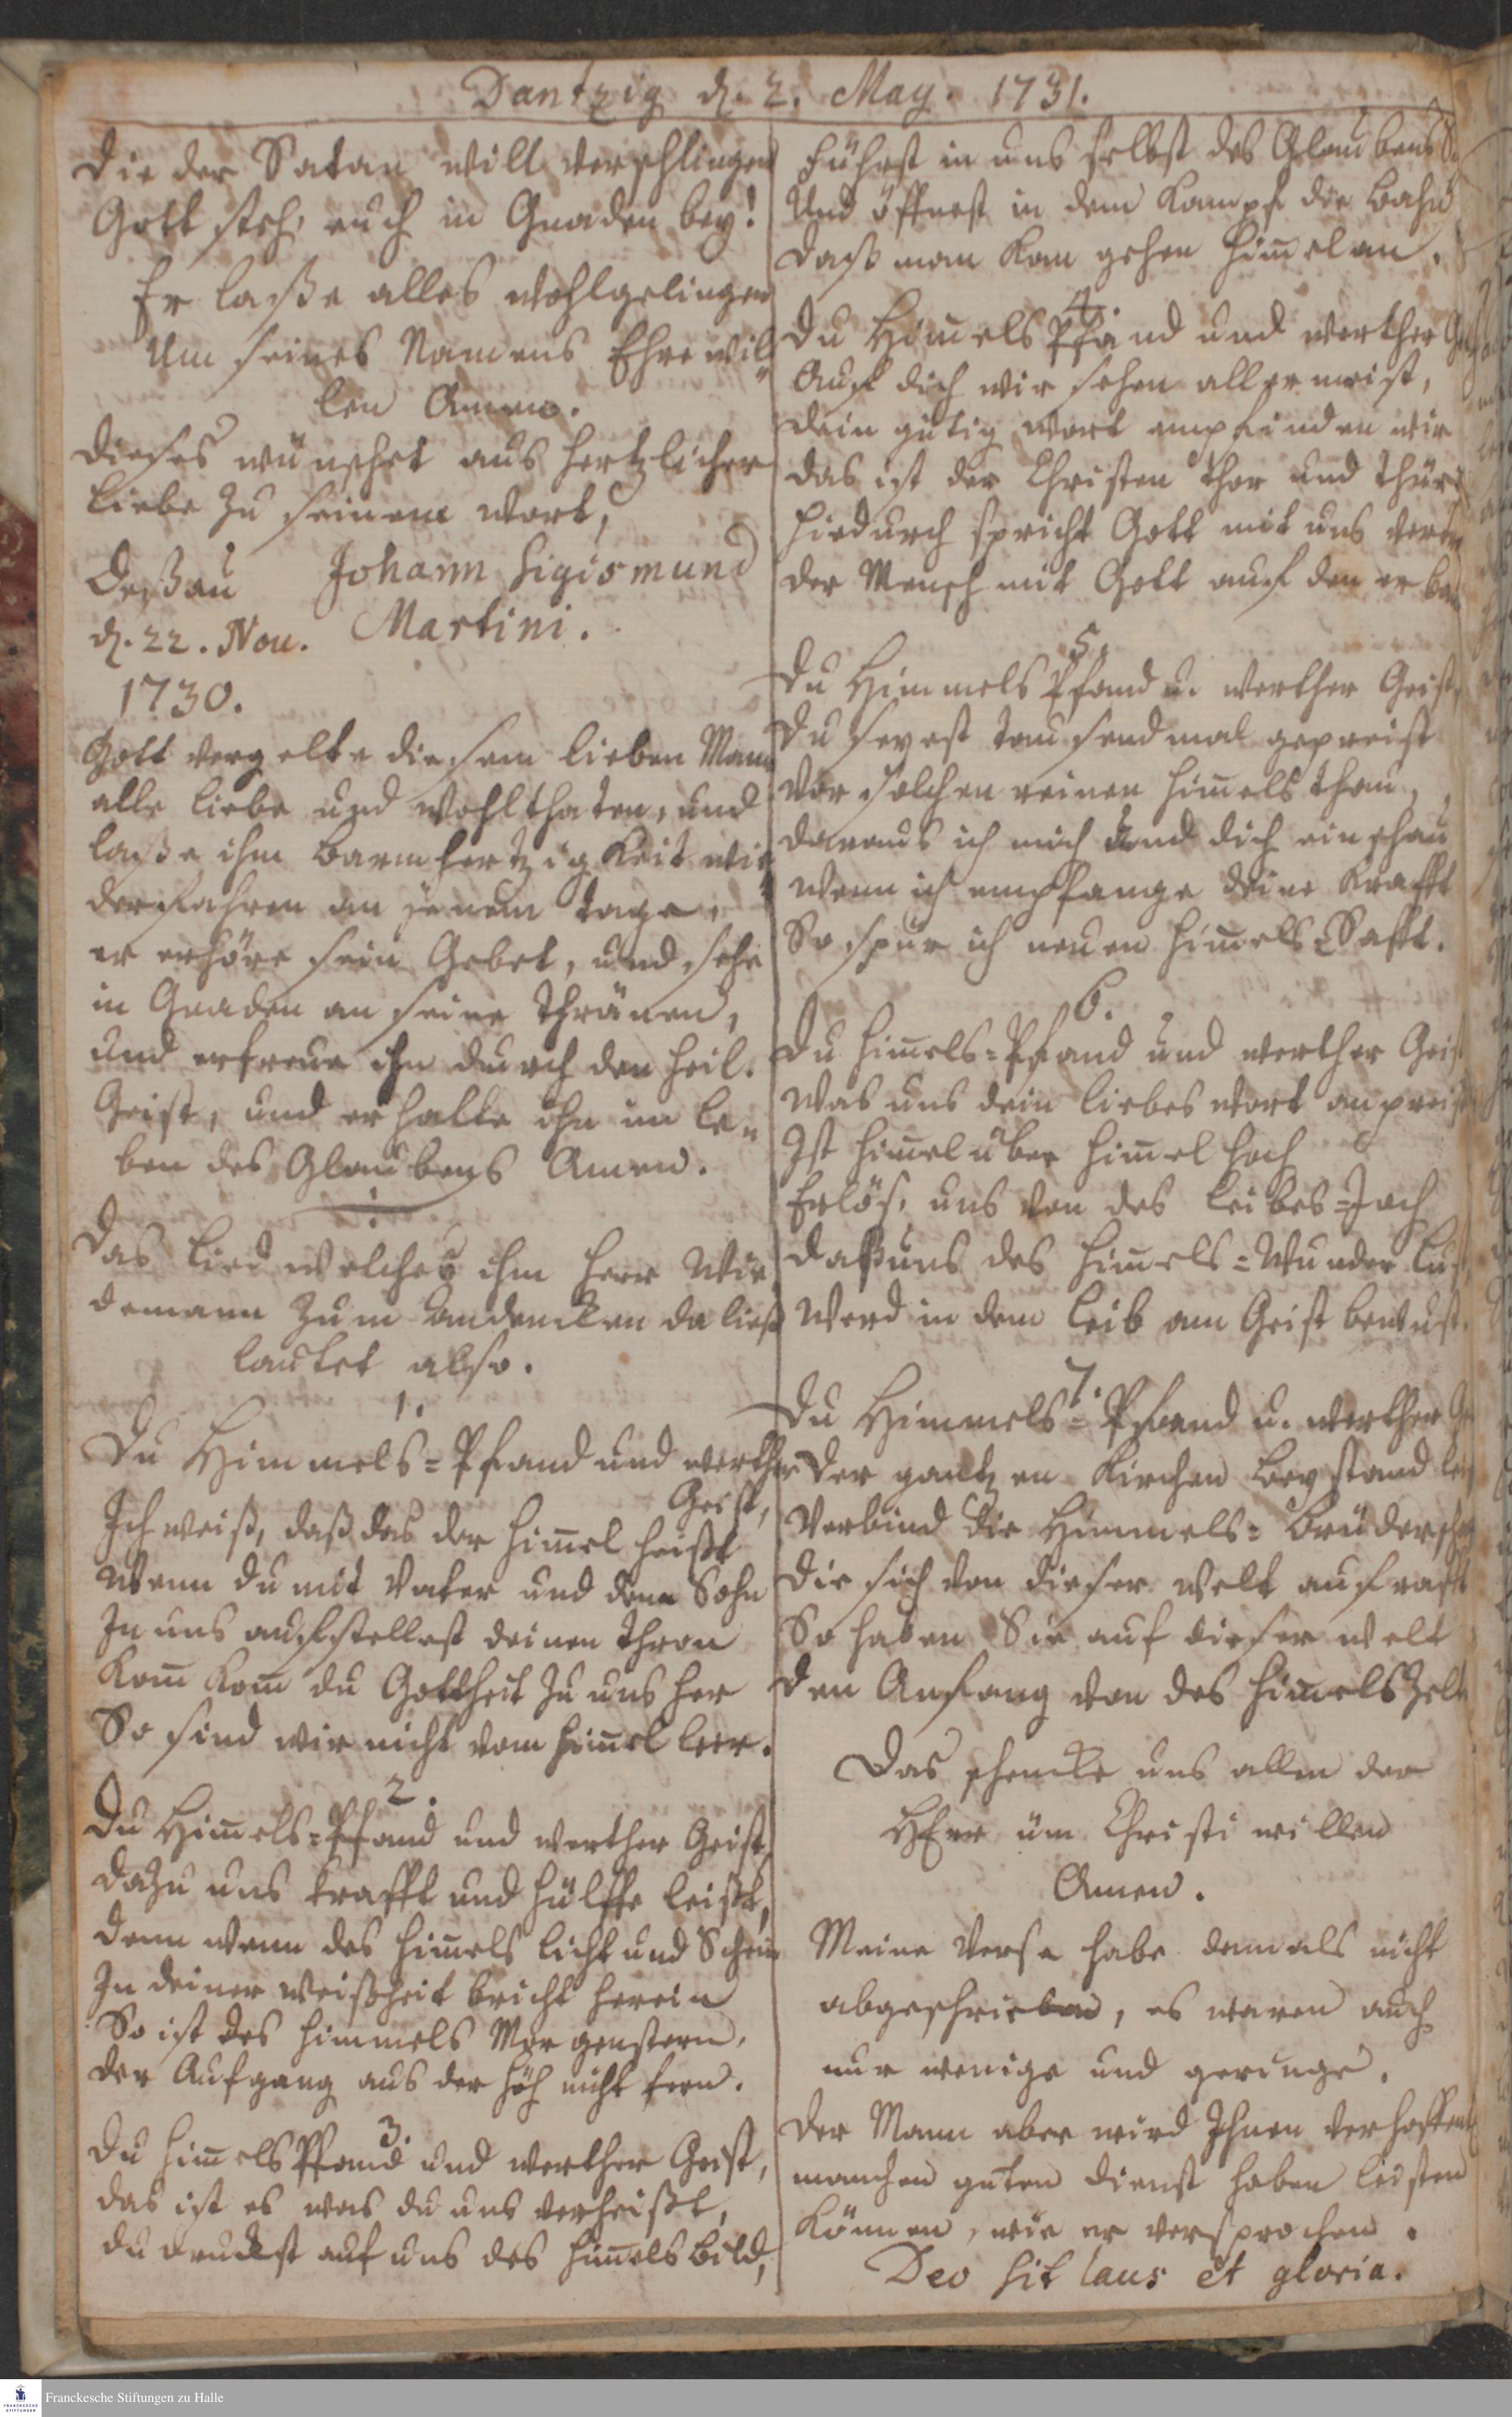 Dantzig d. 2. May. 1731.
Die der Satan will verschlingen
Gott steh' euch in Gnaden bey!
Er laße alles wohlgelingen
Um seines Namens Ehre wil„
len Amen.
Dieses wünschet aus hertzlicher
Liebe zu seinem Wort,
Deßau Johann Sigismund
d. 22. Nov. Martini.
1730.
Gott vergelte diesem lieben Mann
alle Liebe und Wohlthaten, und
laße ihm Barmhertzigkeit wie„
derfahren an jenem Tage,
er erhöre sein Gebet, und sehe
in Gnaden an seine Thränen,
und erfreue ihn durch den heil.
Geist, und erhalte ihn im Le„
ben des Glaubens Amen.
Das Lied welches ihm Herr Wie
demann zum Andencken da ließ
lautet also.
1.
Du Himmels=Pfand und werther
Geist,
Ich weiß, daß das der Him̄el heißt
Wenn du mit Vater und dem Sohn
In uns aufstellest deinen Thron
Kom̄ Kom̄ du Gottheit zu uns her
So sind wir nicht vom Him̄el leer.
2.
Du Him̄els=Pfand und werther Geist,
Dazu uns Krafft und Hülffe leist,
Denn wenn des Him̄els Licht und Schein
In deiner Weißheit bricht herein
So ist des Himmels Morgenstern,
Der Aufgang aus der Höh nicht fern.
3.
Du Him̄els Pfand und werther Geist,
Das ist es was du uns verheißt,
Du druckst auf uns des Him̄els Bild,
Führst in uns selbst des Glaubens
Und öffnest in dem Kampf die Bahn
Daß man kan gehen Him̄elan.
4.
Du Him̄els Pfand und werther
Auf dich wir sehen allermeist,
Dein gütig Wort empfinden wir
Das ist der Christen Thor und Thür
Hiedurch spricht Gott mit uns
Der Mensch mit Gott auf den er
5.
Du Himmels Pfand u. werther Geist,
Du seyest tausendmal gepreist
Vor solchen reinen Him̄els Thau,
Daraus ich mich und dich einschau
Wenn ich empfange deine Krafft
So spür ich neuen Him̄els Safft.
6.
Du Him̄els=Pfand und werther Geist
Was uns dein liebes Wort anpreist
Ist Him̄el über Him̄el hoch
Erlös' uns von des Leibes=Joch
Daß uns des Him̄els=Wunder Lust
Werd in dem Leib am Geist bewust.
7.
Du Himmels=Pfand u. werther
Der gantzen Kirchen Beystand
Verbind die Himmels=Brüderschafft
Die sich von dieser Welt aufrafft
So haben Sie auf dieser Welt
Den Anfang von des Him̄els Zelt
Das schencke uns allen der
HErr üm Christi willen
Amen.
Meine Verse habe damals nicht
abgeschrieben, es waren auch
nur wenige und geringe.
Der Mann aber wird Ihnen verhoffentl.
manchen guten Dienst haben leisten
können, wie er versprochen.
Deo sit laus et gloria.
Franckesche Stiftungen zu Halle